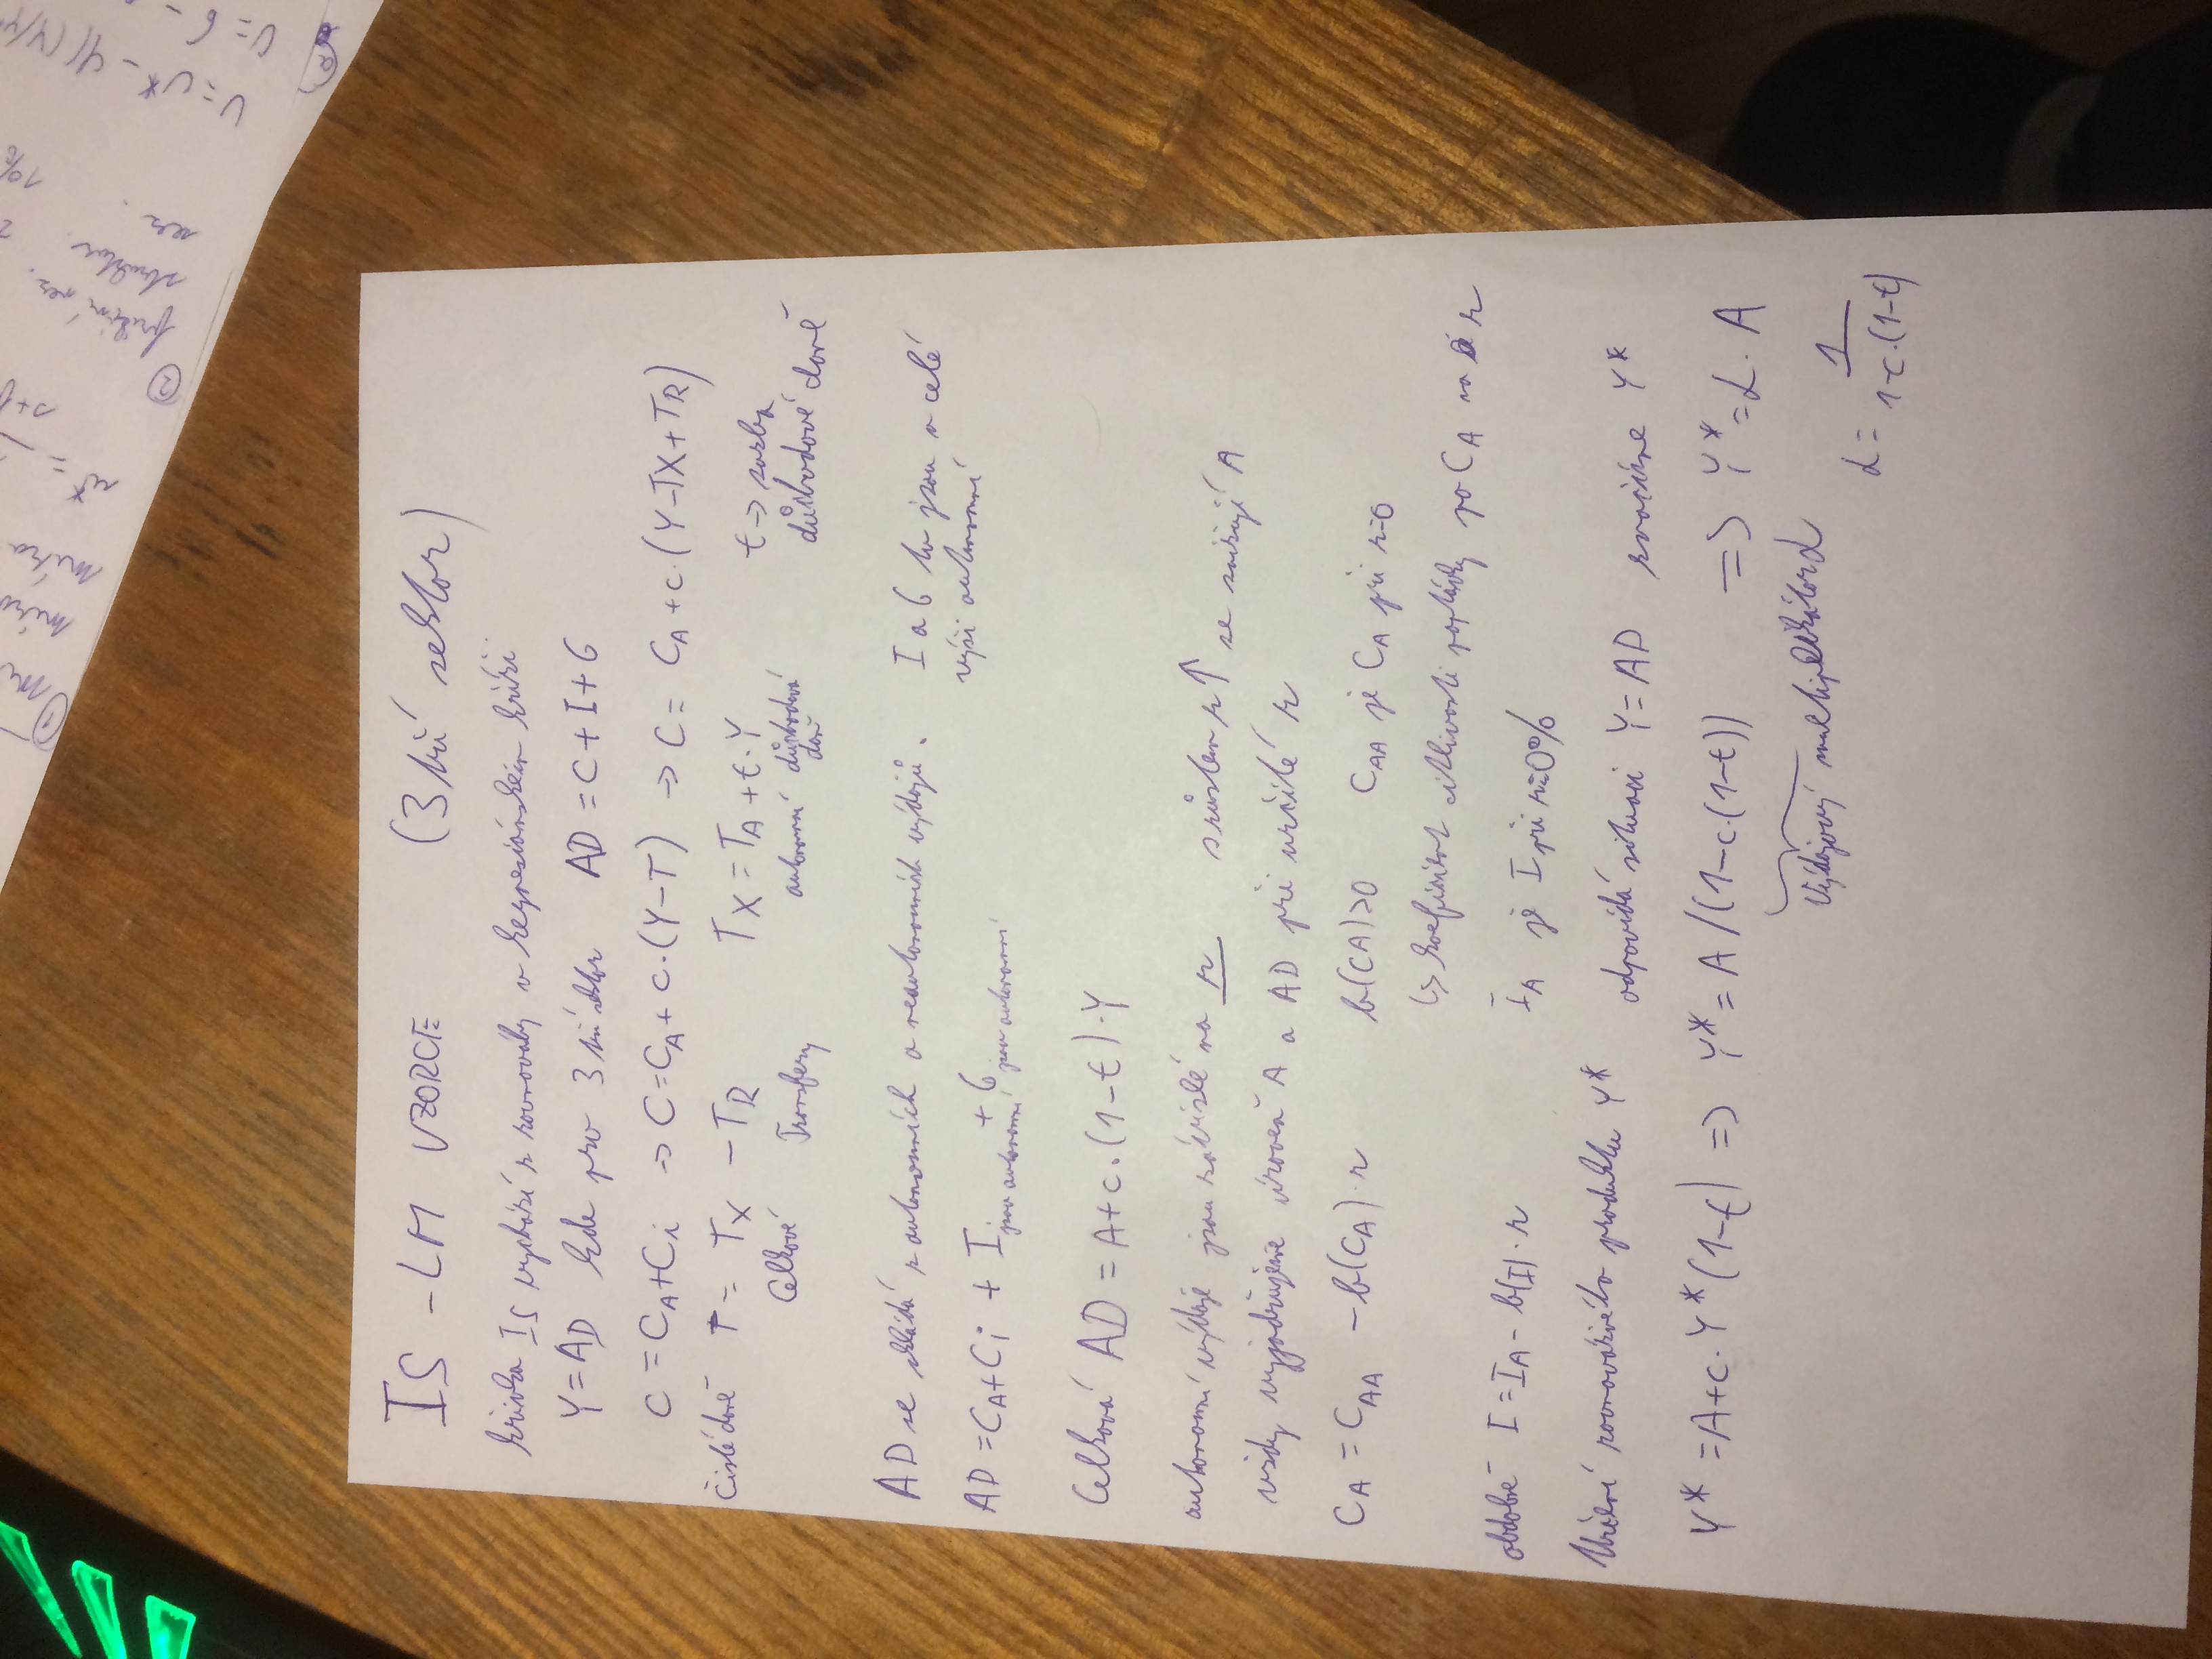 IS - LM VZORCE (3 hý sektor)
křivka IS vychází z rovnováhy v keynesiánském kříži
Y = AD kde pro 3 hý sektor AD = C + I + G
C = CA + Ci -> C = CA + c.(Y - T) -> C = CA + c.(Y - TX + TR)
čisté daně T = TX - TR TX = TA + t.Y t -> sazba
Celkové Transfery autonomní důchodová daň důchodové daně
AD se skládá z autonomních a neautonomních výdajů. I a G tu jsou v celé
výši autonomní
AD = CA + Ci + I jsou autonomní + G jsou autonomní
Celková AD = A + c.(1 - t).Y
autonomní výdaje jsou závislé na r s růstem r ↑ se snižují A
vždy vyjadřujeme úroveň A a AD při určité r
CA = CAA - b(CA).r b(CA)>0 CAA je CA při r=0
↳ koeficient citlivosti poptávky po CA na r
obdobně I = IA - b(I).r IA je I při r=0%
Určení rovnovážného produktu Y* odpovídá situaci Y = AD značíme Y*
Y* = A + c.Y*(1-t) => Y* = A /(1-c.(1-t)) => Y* = α. A
Výdajový multiplikátor α
α = 1 / 1-c.(1-t)
①
míra
míra
u* =
s+f
②
frikční nez.
struktur.
sez.
U = U* -
U = 6 -
a